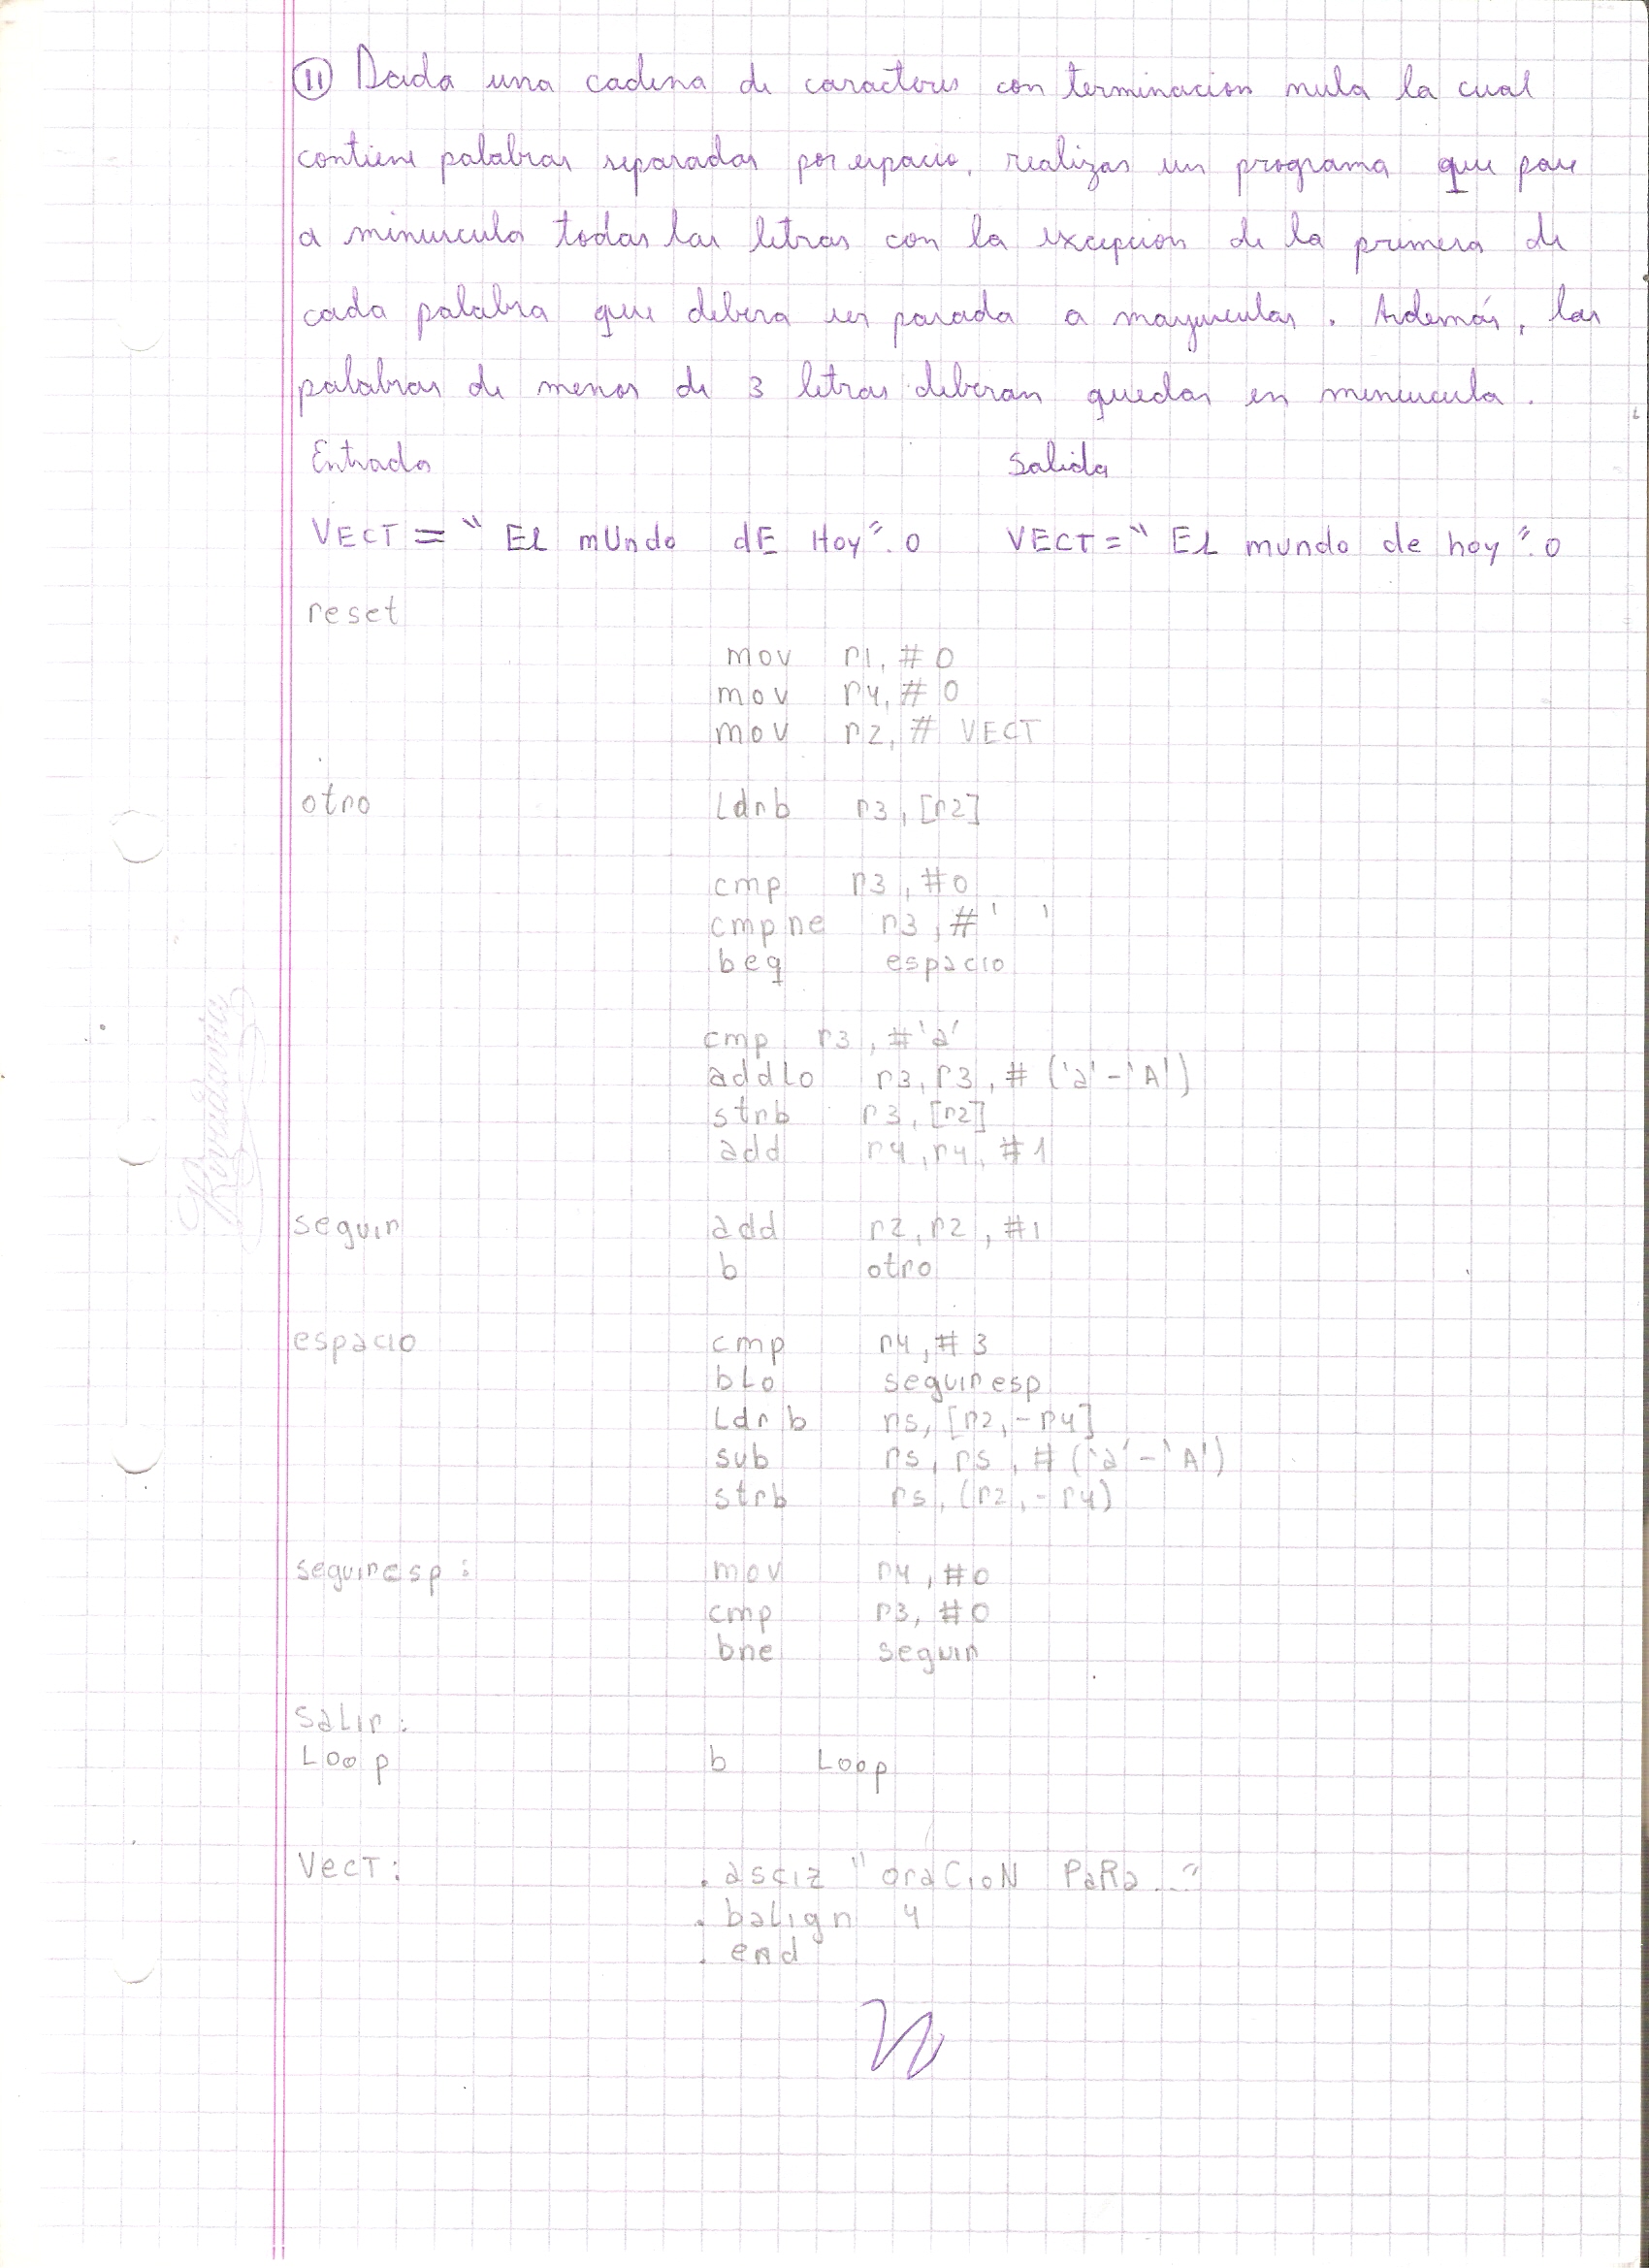 11 Dada una cadena de caracteres con terminacion nula la cual
contiene palabras separadas por espacio, realizar un programa que pase
a minuscula todas las letras con la excepcion de la primera de
cada palabra que debera ser pasada a mayusculas. Además, las
palabras de menos de 3 letras deberan quedar en minuscula.
Entrada Salida
VECT = "El mUndo dE Hoy".0 VECT = "El mundo de hoy".0
reset
mov r1, #0
mov r4, #0
mov r2, # VECT
otro ldrb r3, [r2]
cmp r3, #0
cmpne r3, #' '
beq espacio
cmp r3, #'a'
addlo r3, r3, # ('a'-'A')
strb r3, [r2]
add r4, r4, #1
seguir add r2, r2, #1
b otro
espacio cmp r4, #3
blo seguiresp
Ldrb r5, [r2, -r4]
sub r5, r5, # ('a'-'A')
strb r5, (r2, -r4)
seguiresp: mov r4, #0
cmp r3, #0
bne seguir
Salir:
Loop b Loop
VecT: .asciz "oraCioN PaRa..."
.balign 4
.end
Rivadavia